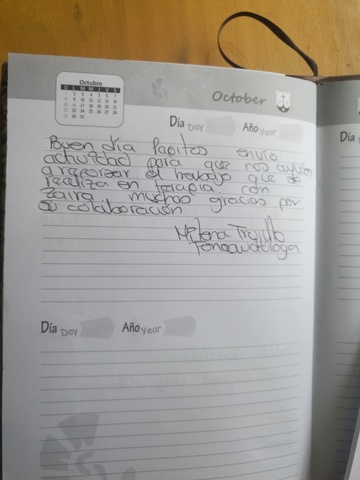 Octubre
D L M M J V S
October
Día Day Año Year
Buen día Papitos envío
actividad para que nos ayuden
a reforzar el trabajo que se
realiza en terapia con
Zaira muchas gracias por
su colaboración
Milena Trujillo
Fonoaudióloga
Día Day Año Year
Día
Día